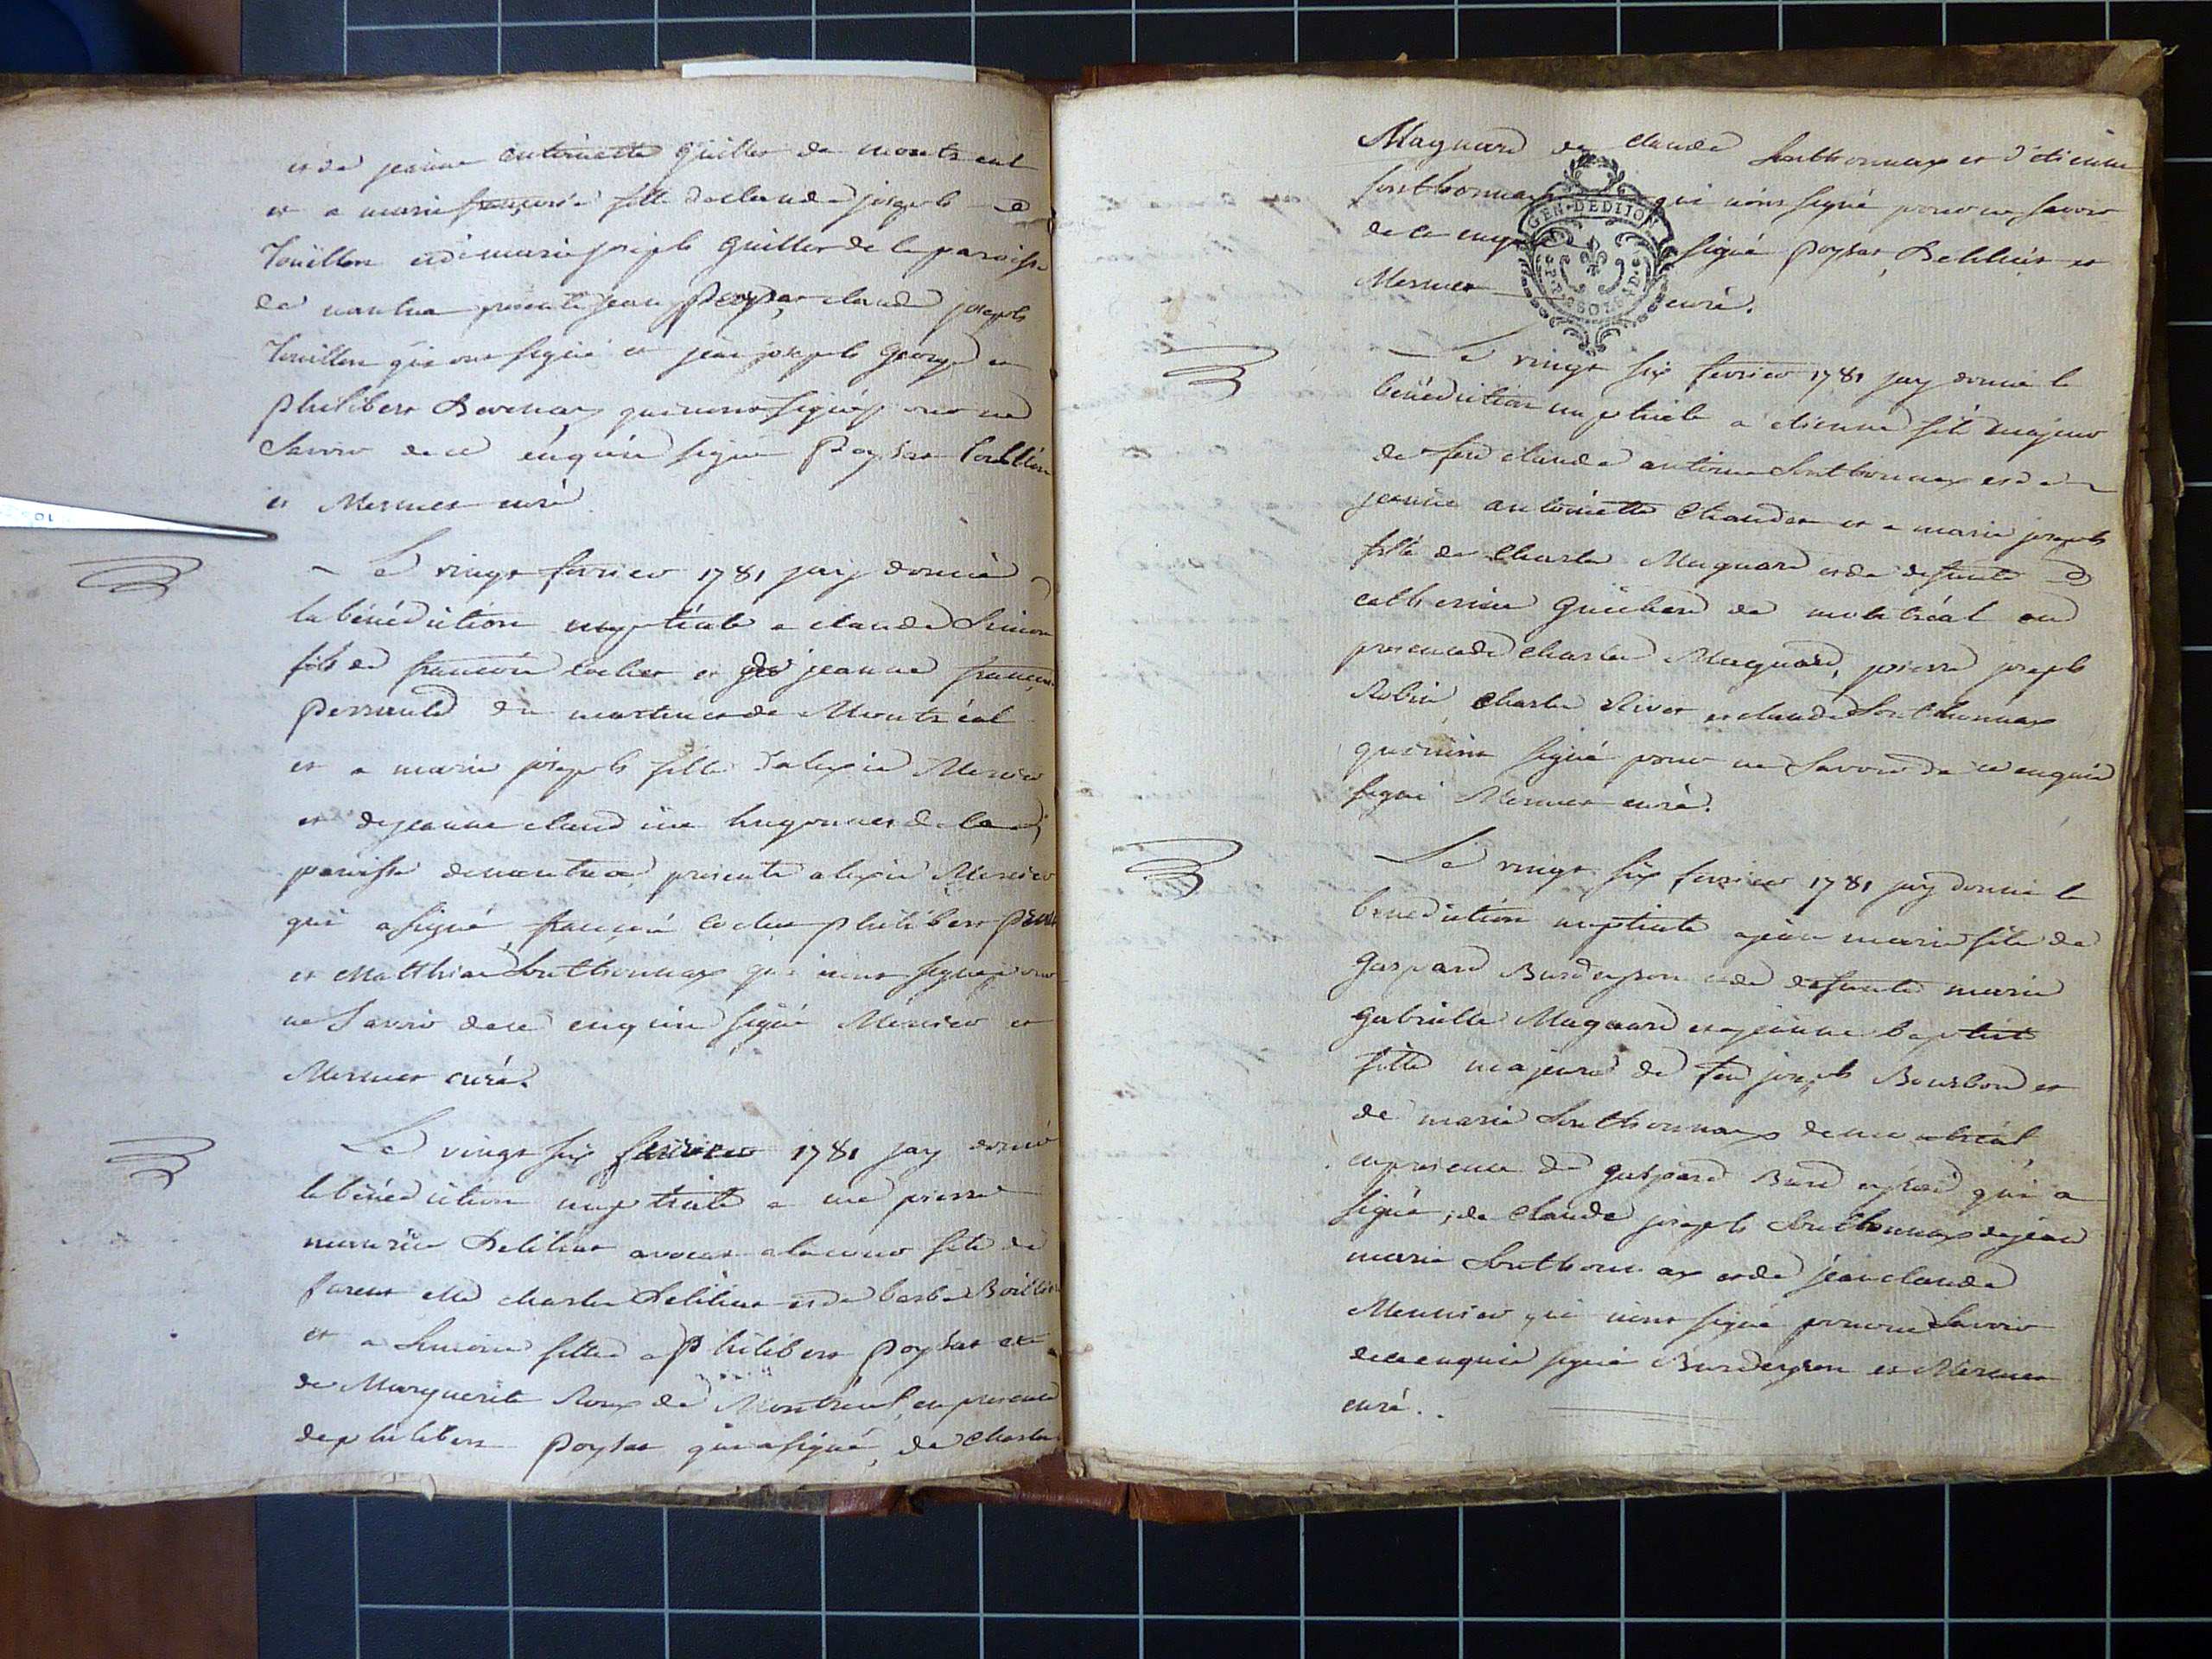 et de jeanne antoinette Guillot de montreal
et a marie françoise fille de claude joseph
Touillon et de marie joseph Guillot de la paroisse
de nantua presents jean Poysat, claude joseph
Touillon qui ont signé et jean joseph George et
philibert qui n'ont signé pour ne
Savoir de ce enquis signé Poysat Touillon
et Mermet curé
Le vingt fevrier 1781 jay donné
la bénédiction nuptiale a claude Simon
fils de françois cochet et de jeanne françoise
Perrault du martinet de Montréal
et a marie joseph fille d'alexis Mercier
et de jeanne claudine hugonnet de la
paroisse de nantua, presents alexis Mercier
qui a signé, françois cochet philibert
et Matthieu Sonthonnax qui n'ont signé pour
ne Savoir de ce enquis signé Mercier et
Mermet curé.
Le vingt six fevrier 1781 jay donné
la bénédiction nuptiale a me pierre
maurice Delilia avocat a la cour fils de
fureut Me charles Delilia et de barbe
et a Simone fille a Philibert Poysat et
de Marguerite Roux de Montréal, en presence
de philibert Poysat qui a signé, de Charles
Magnard de claude Sonthonnax et d'etienne
sonthonnax qui n'ont signé pour ne savoir
de ce enquis signé Poysat, Delilia et
Mermet curé.
GEN. DE DIJON
Le vingt six fevrier 1781 jay donné la
bénédiction nuptiale a etienne fils majeur
de feu claude antoine Sonthonnax et de
jeanne antoinette Chaudet et a marie joseph
fille de Charles Magnard et de defunte
catherine Guichard de montréal en
presence de charles Magnard, pierre joseph
Robin, Charles River et claude Sonthonnax
qui n'ont signé pour ne Savoir de ce enquis
signé Mermet curé.
Le vingt six fevrier 1781 jay donné la
benediction nuptiale a jean marie fils de
Gaspard Burdeyron et de defunte marie
Gabrielle Magnard et a jeanne baptiste
fille majeure de feu joseph Bourbon et
de marie Sonthonnax de montréal,
en presence de gaspard Burdeyron qui a
signé, de Claude joseph Sonthonnax de jean
marie Sonthonnax et de jean claude
Meunier qui n'ont signé pour ne Savoir
de ce enquis signé Burdeyron et Mermet
curé.